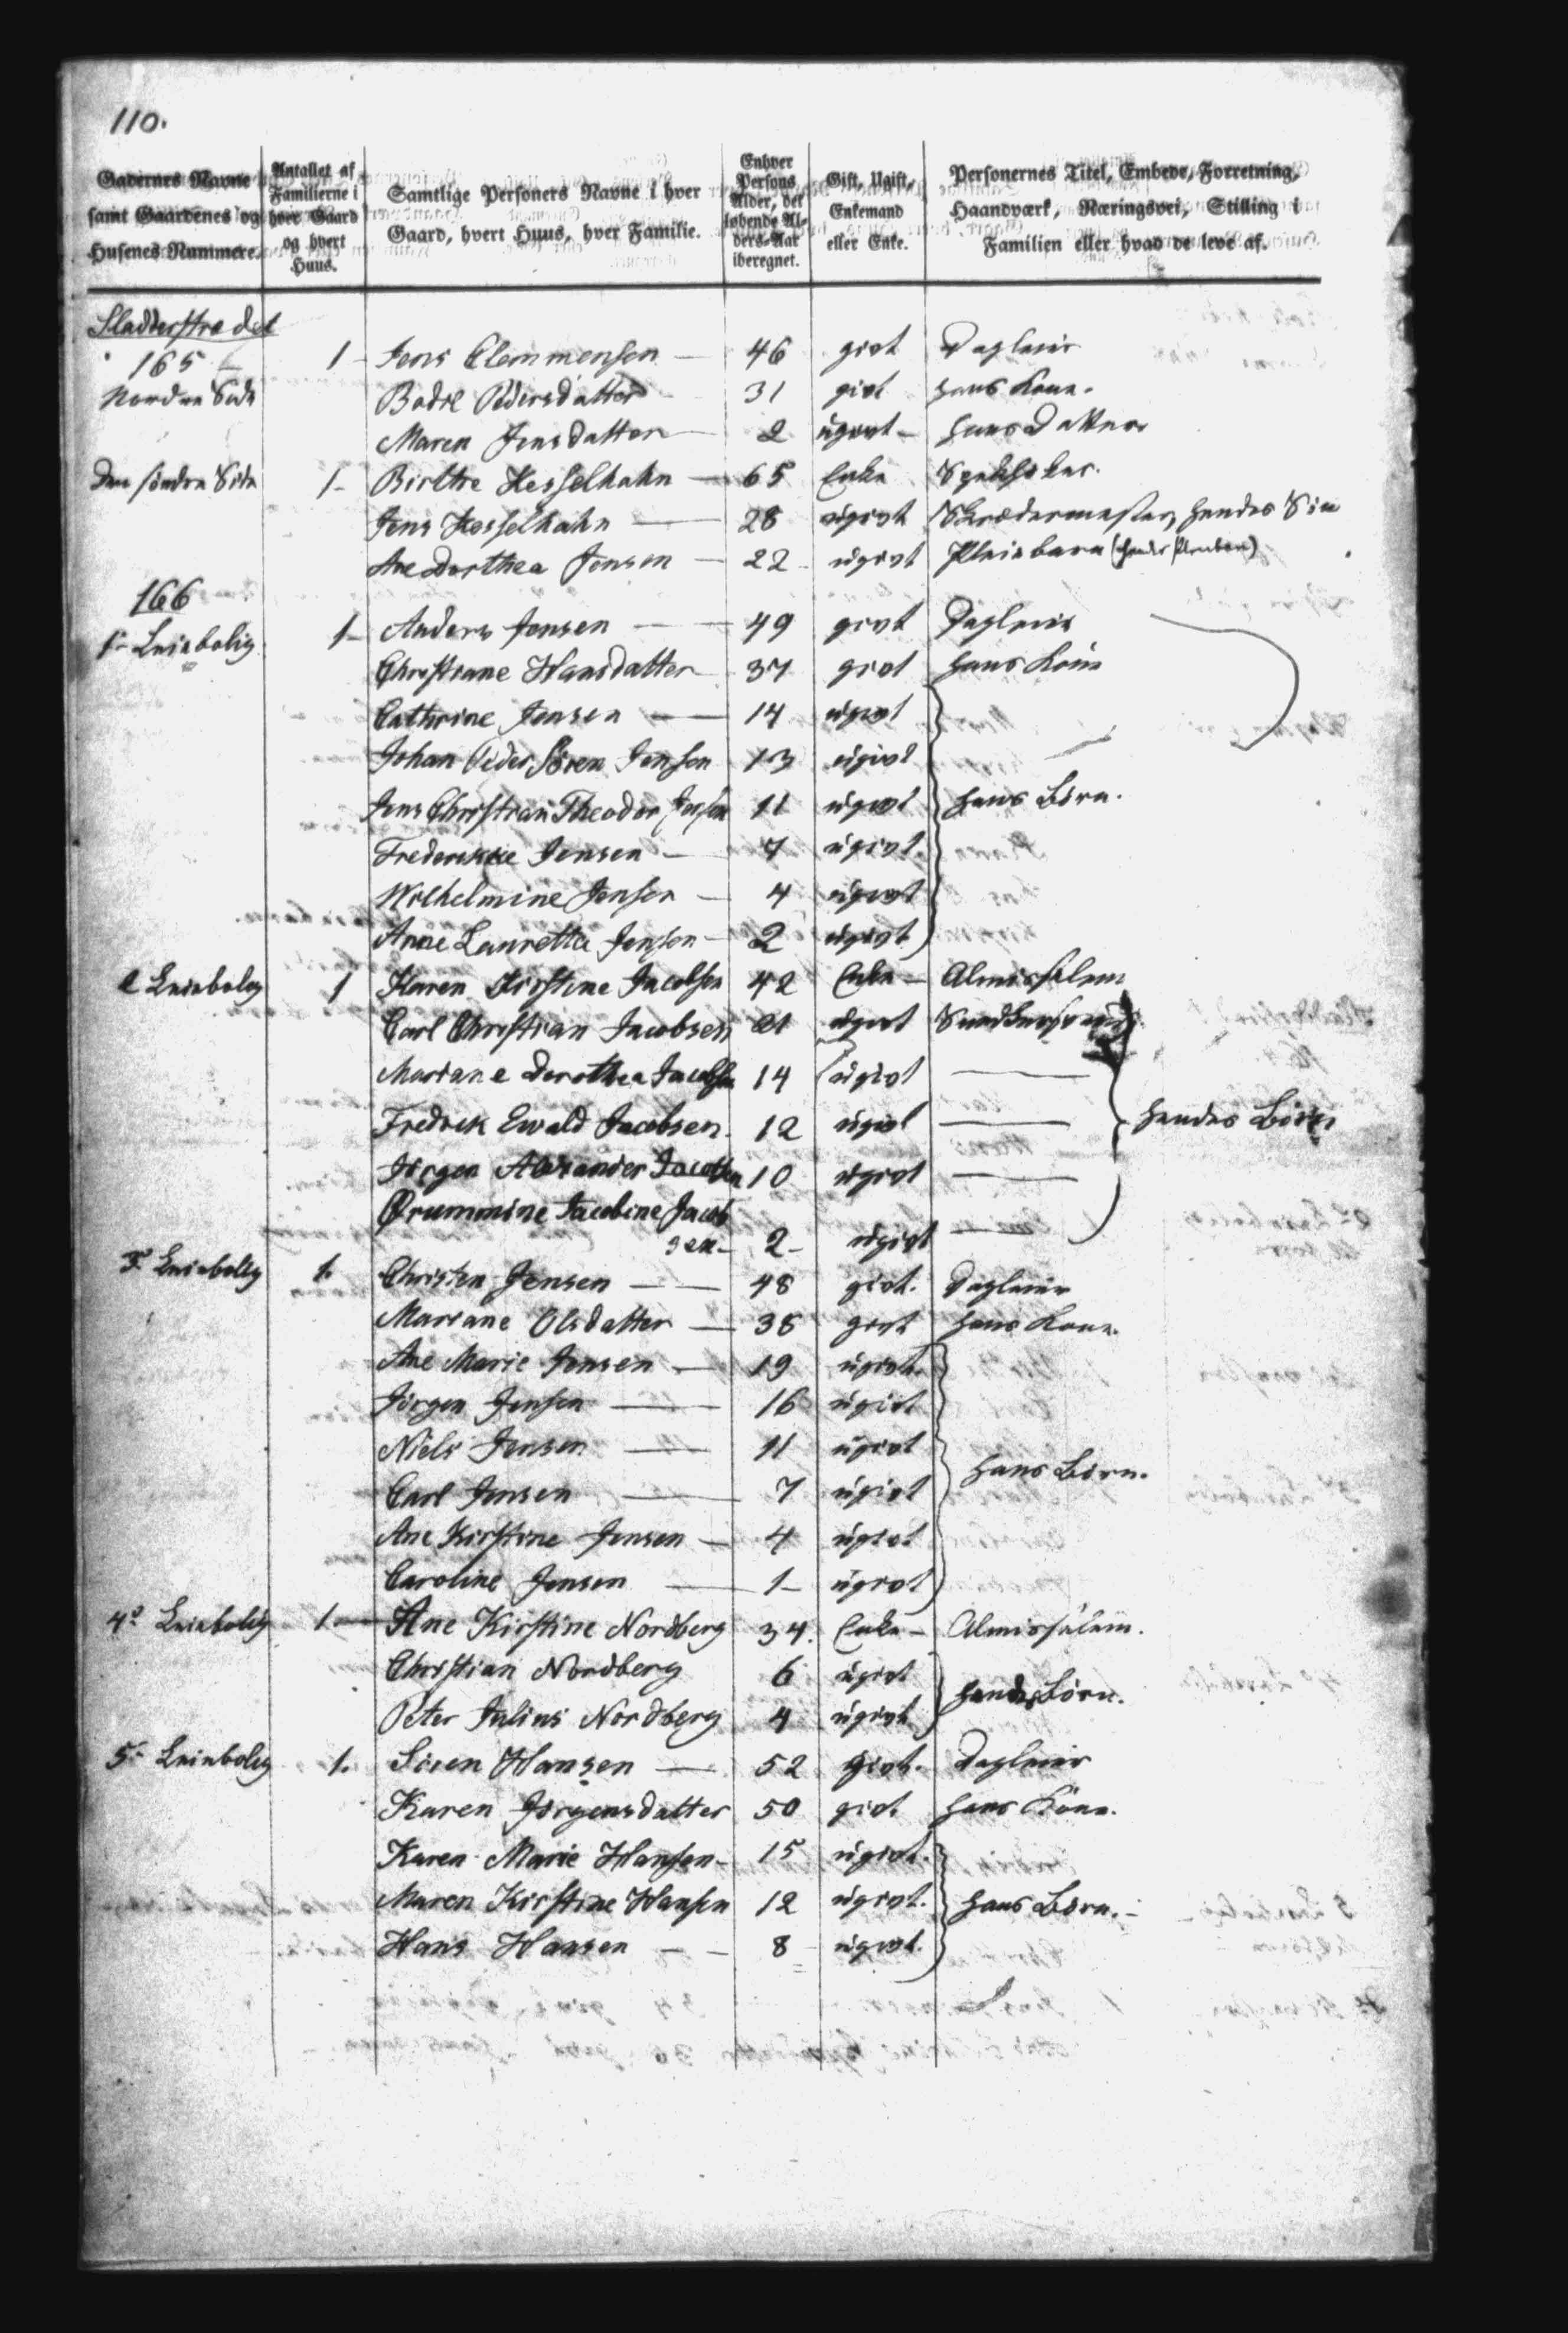 110.
Gadernes Navne samt Gaardenes og Husenes Nummere.
Antallet af Familierne i hver Gaard og hvert Huus.
Samtlige Personers Navne i hver Gaard, hvert Huus, hver Familie.
Enhver Persons Alder, det løbende Alders-Aar iberegnet.
Gift, Ugift, Enkemand eller Enke.
Personernes Titel, Embede, Forretning, Haandværk, Næringsvei, Stilling i Familien eller hvad de leve af.
Sladderstrædet
165 1 Jens Clemmensen 46 givt Dagleier
Nordre Side Bodil Pedersdatter 31 givt hans Kone.
Maren Jensdatter 2 ugivt hans Datter
Den søndre Side 1 Birthe Kesselhahn 65 Enke
Jens Kesselhahn 28 ugivt Skrædermester, hendes Søn
Ane Dorthea Jensen 22 ugivt Pleiebarn
166
1 Leiebolig 1 Anders Jensen 49 givt Dagleier
Christiane Hansdatter 37 givt hans Kone
Cathrine Jensen 14 ugivt
Johan Peder Søren Jensen 13 ugivt
Jens Christian Theodor Jensen 11 ugivt hans Børn.
Frederikke Jensen 7 ugivt.
Wilhelmine Jensen 4 ugivt
Anne Lauretta Jensen 2 ugivt
2 Leiebolig 1 Karen Kirstine Jacobsen 42 Enke Almisselem
Carl Christian Jacobsen 21 ugivt
Mariane Dorothea Jacobsen 14 ugivt
Fredrek Ewald Jacobsen. 12 ugivt hendes Børn
Jörgen Alexander Jacobsen 10 ugivt
Drummine Jacobine Jacob
sen 2 ugivt
3 Leiebolig 1. Christen Jensen 48 givt. Dagleier
Mariane Olsdatter 38 givt hans Kone.
Ane Marie Jensen 19 ugivt.
Jörgen Jensen 16 ugivt
Niels Jensen 11 ugivt
Carl Jensen 7 ugivt hans Børn.
Ane Kirstine Jensen 4 ugivt
Caroline Jensen 1 ugivt
4 Leiebolig 1. Ane Kirstine Nordberg 34. Enke Almisselem.
Christian Nordberg 6 ugivt
Peter Julius Nordberg 4 ugivt hendes Børn.
5 Leiebolig 1. Sören Hansen 52 givt. Dagleier
Karen Jörgensdatter 50 givt hans Kone.
Karen Marie Hansen 15 ugivt.
Maren Kirstine Hansen 12 ugivt. hans Børn.
Hans Hansen 8 ugivt.